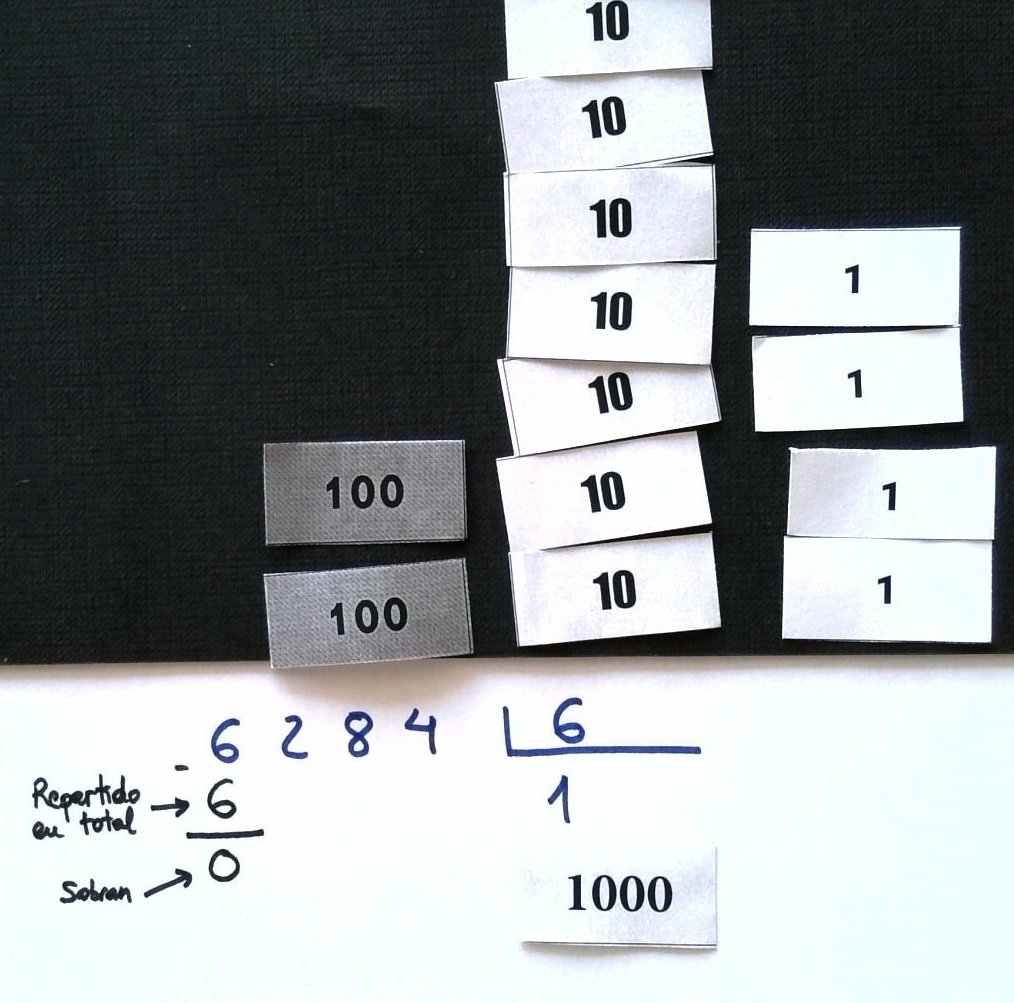 10
10
10
10
10
10
10
1
1
1
1
100
100
6 2 8 4 6
- 6 1
Repartido
en total
0
Sobran
1000